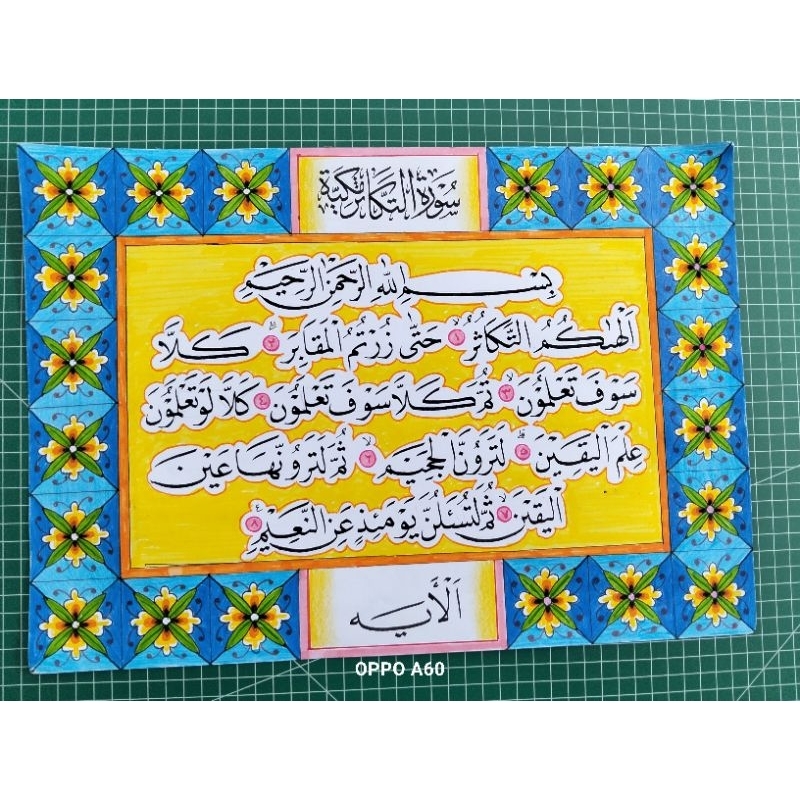 سُوْرَةُ التَّكَاثُرِ مَكِّيَّة
بِسْمِ اللهِ الرَّحْمٰنِ الرَّحِيْمِ
اَلْهٰىكُمُ التَّكَاثُرُ ١ حَتّٰى زُرْتُمُ الْمَقَابِرَ ٢ كَلَّا
سَوْفَ تَعْلَمُوْنَ ٣ ثُمَّ كَلَّا سَوْفَ تَعْلَمُوْنَ ٤ كَلَّا لَوْ تَعْلَمُوْنَ
عِلْمَ الْيَقِيْنِ ٥ لَتَرَوُنَّ الْجَحِيْمَ ٦ ثُمَّ لَتَرَوُنَّهَا عَيْنَ
الْيَقِيْنِ ٧ ثُمَّ لَتُسْئَلُنَّ يَوْمَئِذٍ عَنِ النَّعِيْمِ ٨
اَلْأَيه
OPPO A60